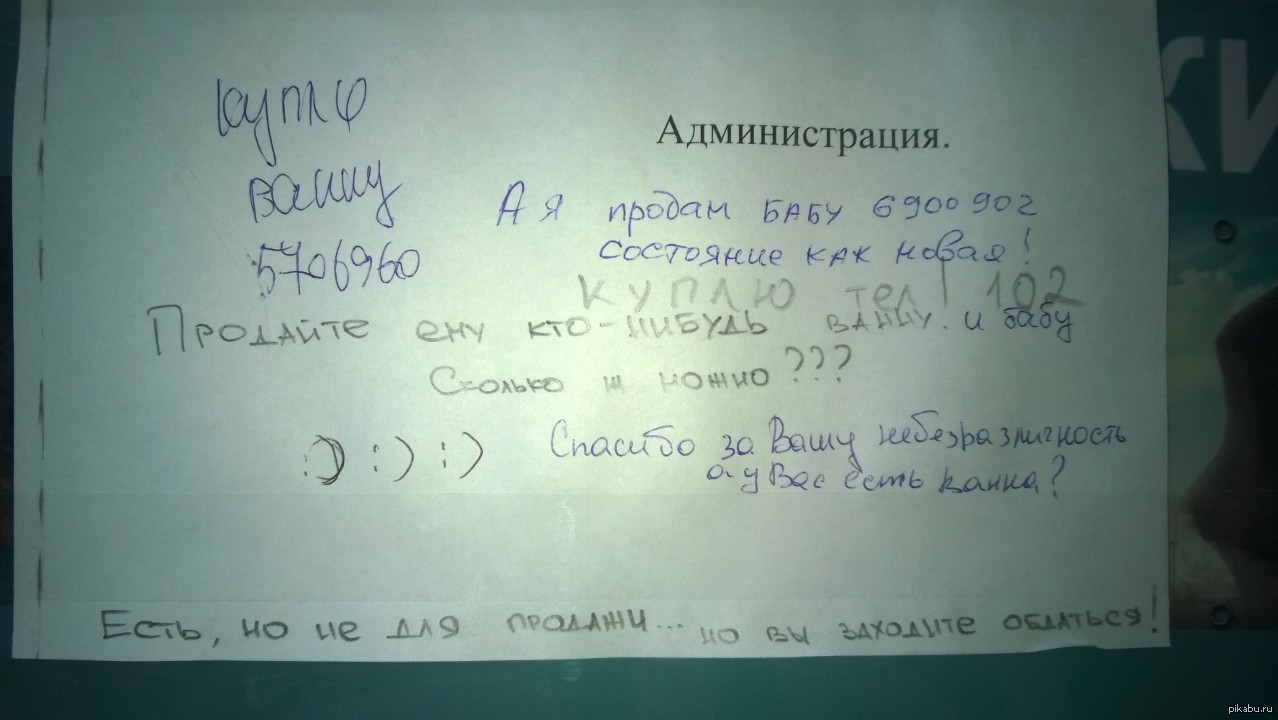 КИ
Администрация.
куплю
ванну
5706960
А я продам БАБУ 6900902
состояние как новая!
КУПЛЮ тел! 102
Продайте ему кто-нибудь ванну. и бабу
Сколько ж можно???
:) :) :)
Спасибо за Вашу небезразличность
а у Вас есть ванна?
Есть, но не для продажи... но вы заходите
pikabu.ru